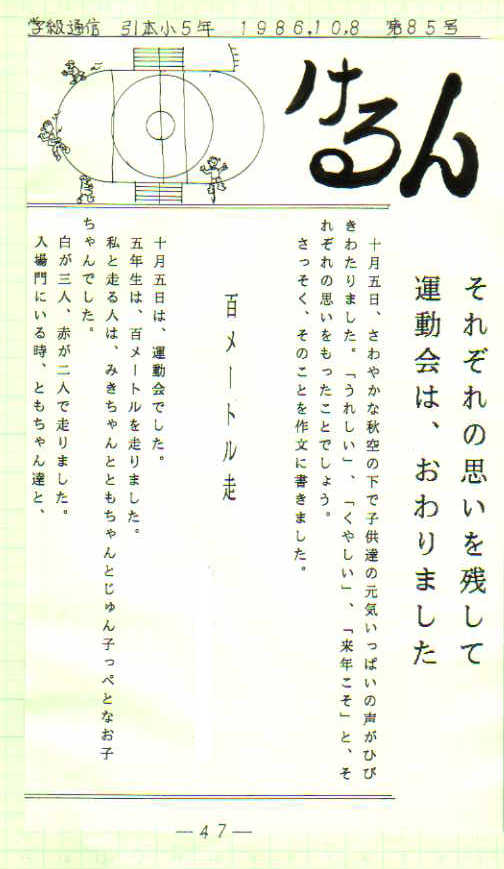 学級通信 引本小5年 1986.10.8 第85号
けるん
それぞれの思いを残して
運動会は、おわりました
十月五日、さわやかな秋空の下で子供達の元気いっぱいの声がひび
きわたりました。「うれしい」、「くやしい」、「来年こそ」と、そ
れぞれの思いをもったことでしょう。
さっそく、そのことを作文に書きました。
百メートル走
十月五日は、運動会でした。
五年生は、百メートルを走りました。
私と走る人は、みきちゃんとともちゃんとじゅん子っぺとなお子
ちゃんでした。
白が三人、赤が二人で走りました。
入場門にいる時、ともちゃん達と、
—47—